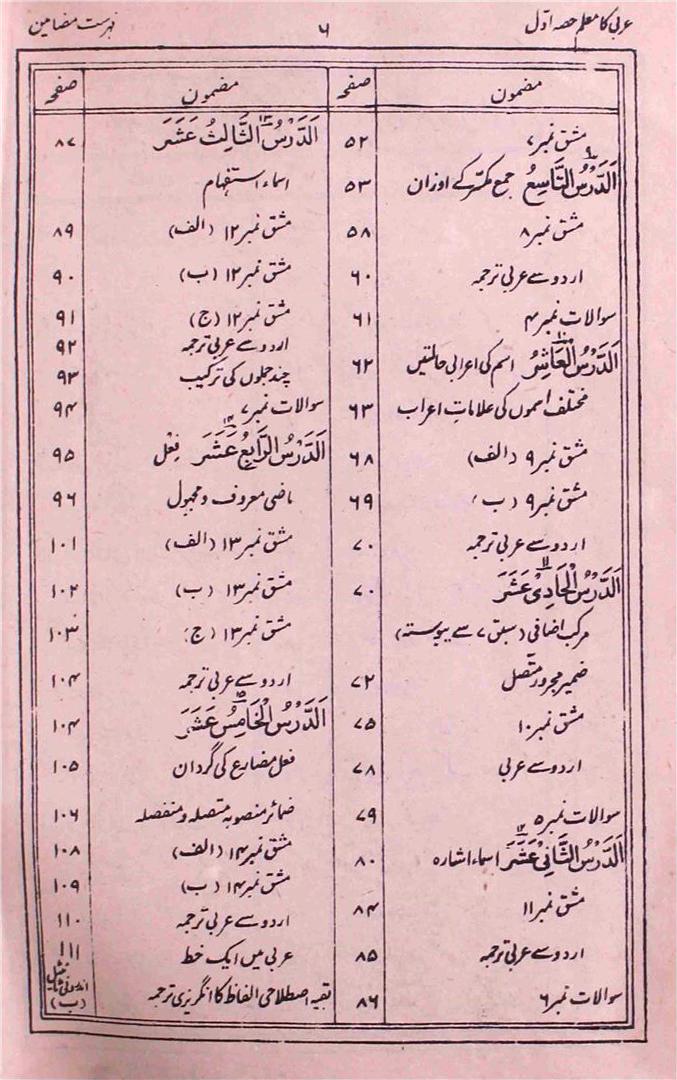 عربی کا معلم حصہ اوّل ۶ فہرست مضامین
مضمون صفحہ
مشق نمبر ۷ ۵۲
اَلدَّرْسُ التَّاسِعُ ۹ جمع مکسّر کے اوزان ۵۳
مشق نمبر ۸ ۵۸
اردو سے عربی ترجمہ ۶۰
سوالات نمبر ۴ ۶۱
اَلدَّرْسُ الْعَاشِرُ ۱۰ اسم کی اعرابی حالتیں ۶۲
مختلف اسموں کی علاماتِ اعراب ۶۳
مشق نمبر ۹ (الف) ۶۸
مشق نمبر ۹ (ب) ۶۹
اردو سے عربی ترجمہ ۷۰
اَلدَّرْسُ الْحَادِیْ عَشَرَ ۱۱ ۷۰
مرکب اضافی (سبق ۷ سے پیوستہ)
ضمیر مجرور متّصل ۷۲
مشق نمبر ۱۰ ۷۵
اردو سے عربی ۷۸
سوالات نمبر ۵ ۷۹
اَلدَّرْسُ الثَّانِیْ عَشَرَ ۱۲ اسماء اشارہ ۸۰
مشق نمبر ۱۱ ۸۴
اردو سے عربی ترجمہ ۸۵
سوالات نمبر ۶ ۸۶
مضمون صفحہ
اَلدَّرْسُ الثَّالِثُ عَشَرَ ۱۳ ۸۷
اسماء استفہام
مشق نمبر ۱۲ (الف) ۸۹
مشق نمبر ۱۲ (ب) ۹۰
مشق نمبر ۱۲ (ج) ۹۱
اردو سے عربی ترجمہ ۹۲
چند جملوں کی ترکیب ۹۳
سوالات نمبر ۷ ۹۴
اَلدَّرْسُ الرَّابِعُ عَشَرَ ۱۴ فِعْل ۹۵
ماضی معروف و مجہول ۹۶
مشق نمبر ۱۳ (الف) ۱۰۱
مشق نمبر ۱۳ (ب) ۱۰۲
مشق نمبر ۱۳ (ج) ۱۰۳
اردو سے عربی ترجمہ ۱۰۴
اَلدَّرْسُ الْخَامِسُ عَشَرَ ۱۵ ۱۰۴
فعل مضارع کی گردان ۱۰۵
ضمائر منصوبہ متصلہ و منفصلہ ۱۰۶
مشق نمبر ۱۴ (الف) ۱۰۸
مشق نمبر ۱۴ (ب) ۱۰۹
اردو سے عربی ترجمہ ۱۱۰
عربی میں ایک خط ۱۱۱
بقیہ اصطلاحی الفاظ کا انگریزی ترجمہ اندرونی ٹائیٹل (ب)